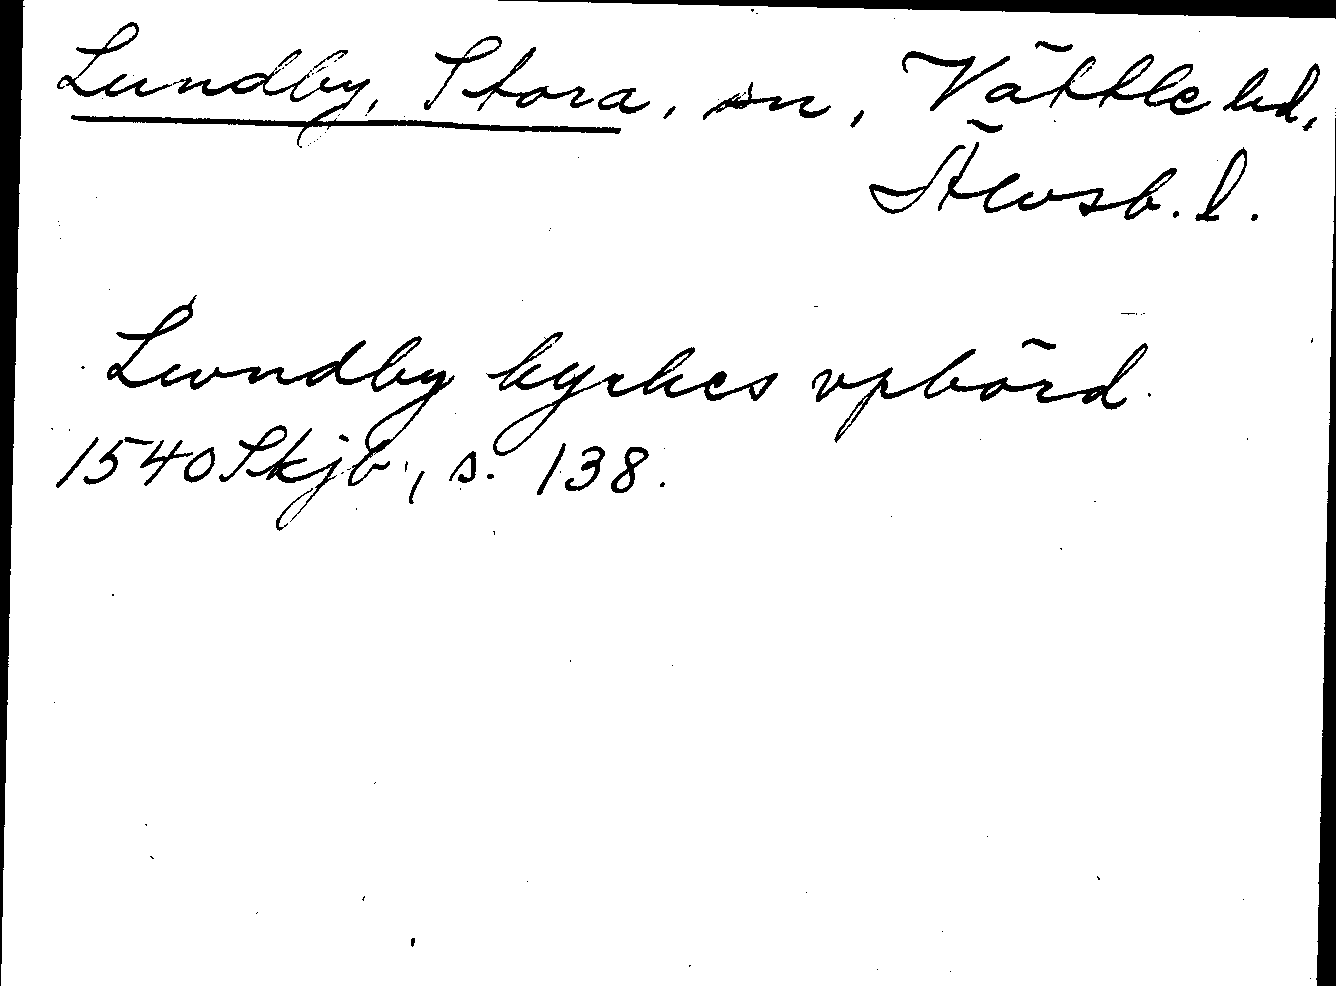 Lundby, Stora, sn, Vättle hd,
Älvsb. l.
Lwndby kyrkes vpbörd
1540 Skjb, s. 138.